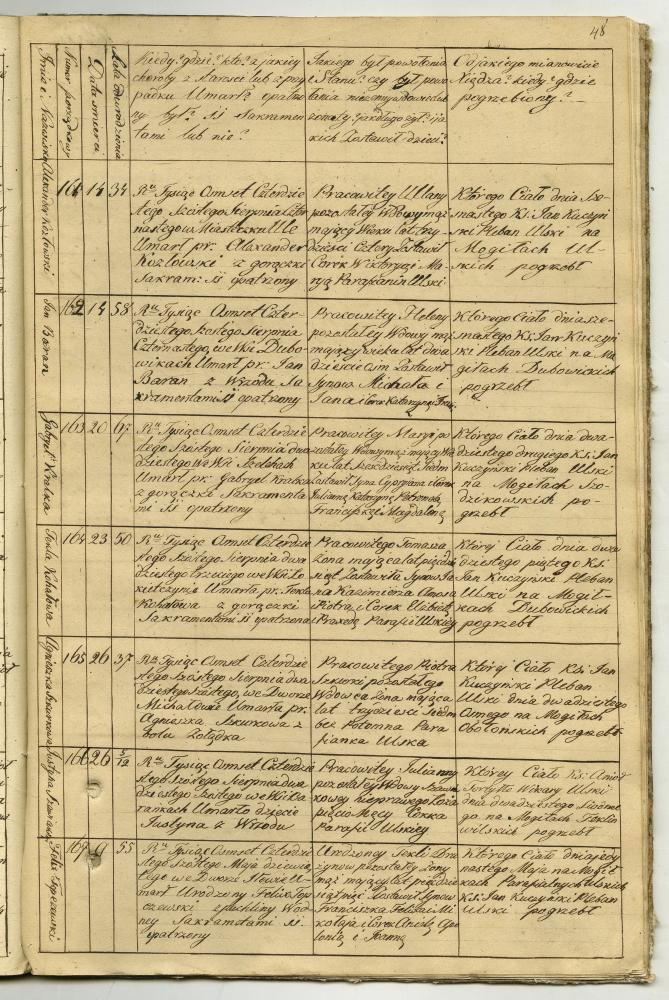 48
Imie i Nazwisko
Numer porządkowy
Data śmierci
Lata urodzenia
Kiedy? gdzie? kto? z jakiey
choroby z starości lub z przy
padku Umarł? opatrzo
ny był? SS Sakramen
tami lub nie?
Jakiego był powołania
i Stanu? czy był
żonaty? jak długo żył? i ja
kich Zostawił dzieci?
Od jakiego mianowicie
Xiędza? kiedy? gdzie
pogrzebiony?
Alexander Kozłowski
161 14 34
Rku Tysiąc Osmset Czterdzie
stego Szóstego Sierpnia Czter
nastego w Miasteczku Ule
Umarł pr. Alexander
Kozłowski z gorączki
Sakram: SS opatrzony
Pracowitey Ulany
pozostałey Wdowy mąż
mający Wieku lat trzy
dzieści Cztery Zostawił
Corek Wiktoryą i Ma
ryą Parafianin Ulski
Którego Ciało dnia Sze
snastego Ks: Jan Kuczyń
ski Pleban Ulski na
Mogiłach Ul-
skich pogrzebł
Jan Baran
162 14 58
Rku Tysiąc Osmset Czter-
dziestego Szóstego Sierpnia
Czternastego, we Wsi Dubo
wikach Umarł pr. Jan
Baran z Wrzodu Sa
kramentami SS opatrzony
Pracowitey Heleny
pozostałey Wdowy mąż
mający wieku lat dwa
dzieścia osim Zostawił
Synow Michała i
Jana i Corek Katarzynę
Którego Ciało dnia sze
snastego Ks: Jan Kuczyń
ski Pleban Ulski na Mo
giłach Dubowickich
pogrzebł
Gabryel Kralka
163 20 67
Rku Tysiąc Osmset Czterdzie
stego Szóstego Sierpnia dwa
dziestego we Wsi
Umarł pr. Gabryel Kralka
z gorączki Sakramenta
mi SS opatrzony
Pracowitey Maryi po
zostałey Wdowy mąż mający Wie
ku lat Sześćdziesiąt Siedm
Zostawił Syna Cypryana i Corek
Julianę Katarzynę Petronelę
Franciszkę i Magdalenę
Którego Ciało dnia dwa-
dziestego drugiego Ks: Jan
Kuczyński Pleban Ulski
na Mogiłach
po-
grzebł
Tekla Kohatowa
164 23 50
Rku Tysiąc Osmset Czterdzie
stego Szóstego Sierpnia dwa
dziestego trzeciego we Wsi
Umarła pr. Tekla
Kohatowa z gorączki
Sakramentami SS opatrzona
Pracowitego Tomasza
żona mająca lat pięćdzie
siąt Zostawiła Synow Ja
na Kazimierza Amosa
Piotra i Corek Elżbietę
Praxedę Parafii Ulskiey
Którey Ciało dnia dwa
dziestego piątego Ks:
Jan Kuczyński Pleban
Ulski na Mogił-
kach Dubowickich
pogrzebł
Agnieszka Szkurkowa
165 26 37
Rku Tysiąc Osmset Czterdzie
stego Szóstego Sierpnia dwa
dziestego Szóstego, we Dworze
Michałowie Umarła pr.
Agnieszka Szkurkowa z
bolu Zołądka
Pracowitego Piotra
Szkurki pozostałego
Wdowca Żona mająca
lat trzydzieści Siedm
bez Potomna Para
fianka Ulska
Którey Ciało Ks: Jan
Kuczyński Pleban
Ulski dnia dwudziestego
Osmego na Mogiłach
Obołońskich pogrzebł
Justyna
166 26 5/12
Rku Tysiąc Osmset Czterdzie
stego Szóstego Sierpnia dwa
dziestego Szóstego we Wsi
Umarło dziecie
Justyna z Wrzodu
Pracowitey Julianny
pozostałey Wdowy
nieprawego łoża
pięcio Męcy Corka
Parafii Ulskiey
Którey Ciało Ks:
Wikary Ulski
dnia dwadziestego Siódme
go na Mogiłach
pogrzebł
Felix Topczewski
167 9 55
Rku Tysiąc Osmset Czterdzie
stego Szóstego Maja dziewią
tego we Dworze U-
marł Urodzony Felix Top
czewski z puchliny Wod
ney Sakramętami SS
opatrzony
Urodzoney Tekli
pozostałey żony
mąż mający lat pięćdzie
siąt pięć Zostawił Synow
Franciszka Felixa i Mi
kołaja i Corek Anielę Apo
lonią i Joannę
Którego Ciało dnia jedy
nastego Maja na Mogił
kach Parafialnych Ulskich
Ks: Jan Kuczyński Pleban
Ulski pogrzebł